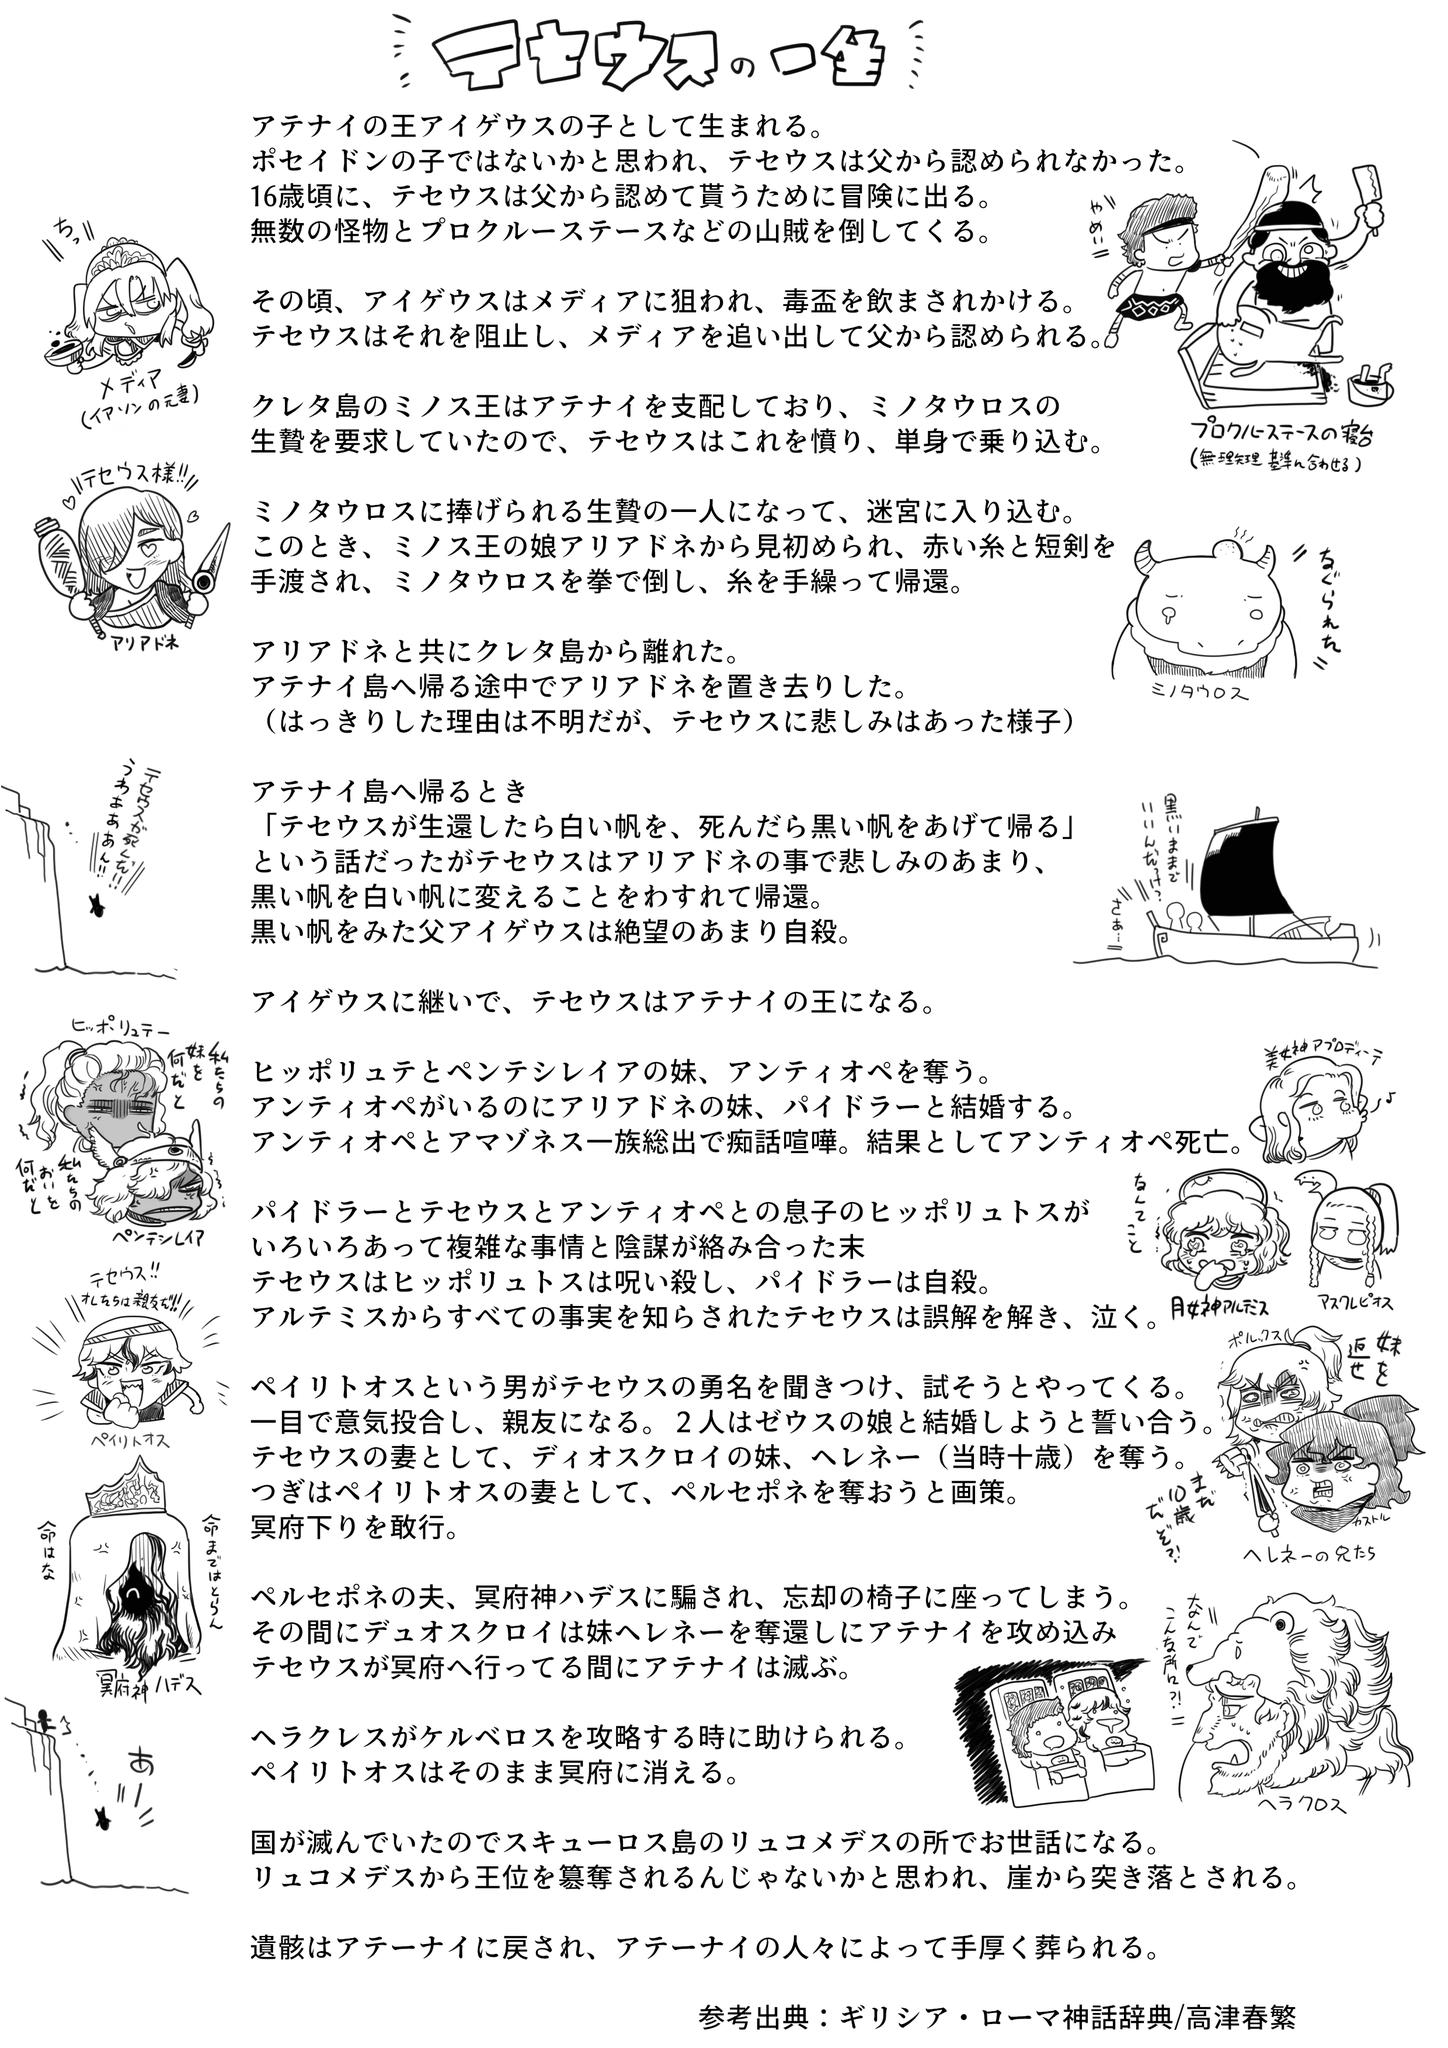 テセウスの一生
アテナイの王アイゲウスの子として生まれる。
ポセイドンの子ではないかと思われ、テセウスは父から認められなかった。
16歳頃に、テセウスは父から認めて貰うために冒険に出る。
無数の怪物とプロクルーステースなどの山賊を倒してくる。
やめい
プロクルーステースの寝台
(無理矢理 基準に合わせる)
ちっ
メディア
(イアソンの元妻)
その頃、アイゲウスはメディアに狙われ、毒盃を飲まされかける。
テセウスはそれを阻止し、メディアを追い出して父から認められる。
クレタ島のミノス王はアテナイを支配しており、ミノタウロスの
生贄を要求していたので、テセウスはこれを憤り、単身で乗り込む。
テセウス様!!
アリアドネ
ミノタウロスに捧げられる生贄の一人になって、迷宮に入り込む。
このとき、ミノス王の娘アリアドネから見初められ、赤い糸と短剣を
手渡され、ミノタウロスを拳で倒し、糸を手繰って帰還。
なぐられた
ミノタウロス
アリアドネと共にクレタ島から離れた。
アテナイ島へ帰る途中でアリアドネを置き去りした。
（はっきりした理由は不明だが、テセウスに悲しみはあった様子）
テセウスが死んだ!!
うわぁぁぁぁん!!
アテナイ島へ帰るとき
「テセウスが生還したら白い帆を、死んだら黒い帆をあげて帰る」
という話だったがテセウスはアリアドネの事で悲しみのあまり、
黒い帆を白い帆に変えることをわすれて帰還。
黒い帆をみた父アイゲウスは絶望のあまり自殺。
黒いままで
いいんだっけ?
さぁ…
アイゲウスに継いで、テセウスはアテナイの王になる。
ヒッポリュテー
私たちの
妹を
何だと
私たちの
おいを
何だと
ペンテシレイア
ヒッポリュテとペンテシレイアの妹、アンティオペを奪う。
アンティオペがいるのにアリアドネの妹、パイドラーと結婚する。
アンティオペとアマゾネス一族総出で痴話喧嘩。結果としてアンティオペ死亡。
美女神アプロディーテ
パイドラーとテセウスとアンティオペとの息子のヒッポリュトスが
いろいろあって複雑な事情と陰謀が絡み合った末
テセウスはヒッポリュトスは呪い殺し、パイドラーは自殺。
アルテミスからすべての事実を知らされたテセウスは誤解を解き、泣く。
なんてこと
月女神アルテミス
アスクレピオス
テセウス!!
オレたちは親友だ!!
ペイリトオス
ペイリトオスという男がテセウスの勇名を聞きつけ、試そうとやってくる。
一目で意気投合し、親友になる。２人はゼウスの娘と結婚しようと誓い合う。
テセウスの妻として、ディオスクロイの妹、ヘレネー（当時十歳）を奪う。
つぎはペイリトオスの妻として、ペルセポネを奪おうと画策。
冥府下りを敢行。
ポルックス
妹を
返せ
まだ
10歳
だぞ?!
カストル
ヘレネーの兄たち
命まではとらん
命はな
冥府神ハデス
ペルセポネの夫、冥府神ハデスに騙され、忘却の椅子に座ってしまう。
その間にデュオスクロイは妹ヘレネーを奪還しにアテナイを攻め込み
テセウスが冥府へ行ってる間にアテナイは滅ぶ。
ヘラクレスがケルベロスを攻略する時に助けられる。
ペイリトオスはそのまま冥府に消える。
なんで
こんな所に?!
ヘラクロス
あ
国が滅んでいたのでスキューロス島のリュコメデスの所でお世話になる。
リュコメデスから王位を簒奪されるんじゃないかと思われ、崖から突き落とされる。
遺骸はアテーナイに戻され、アテーナイの人々によって手厚く葬られる。
参考出典：ギリシア・ローマ神話辞典/高津春繁